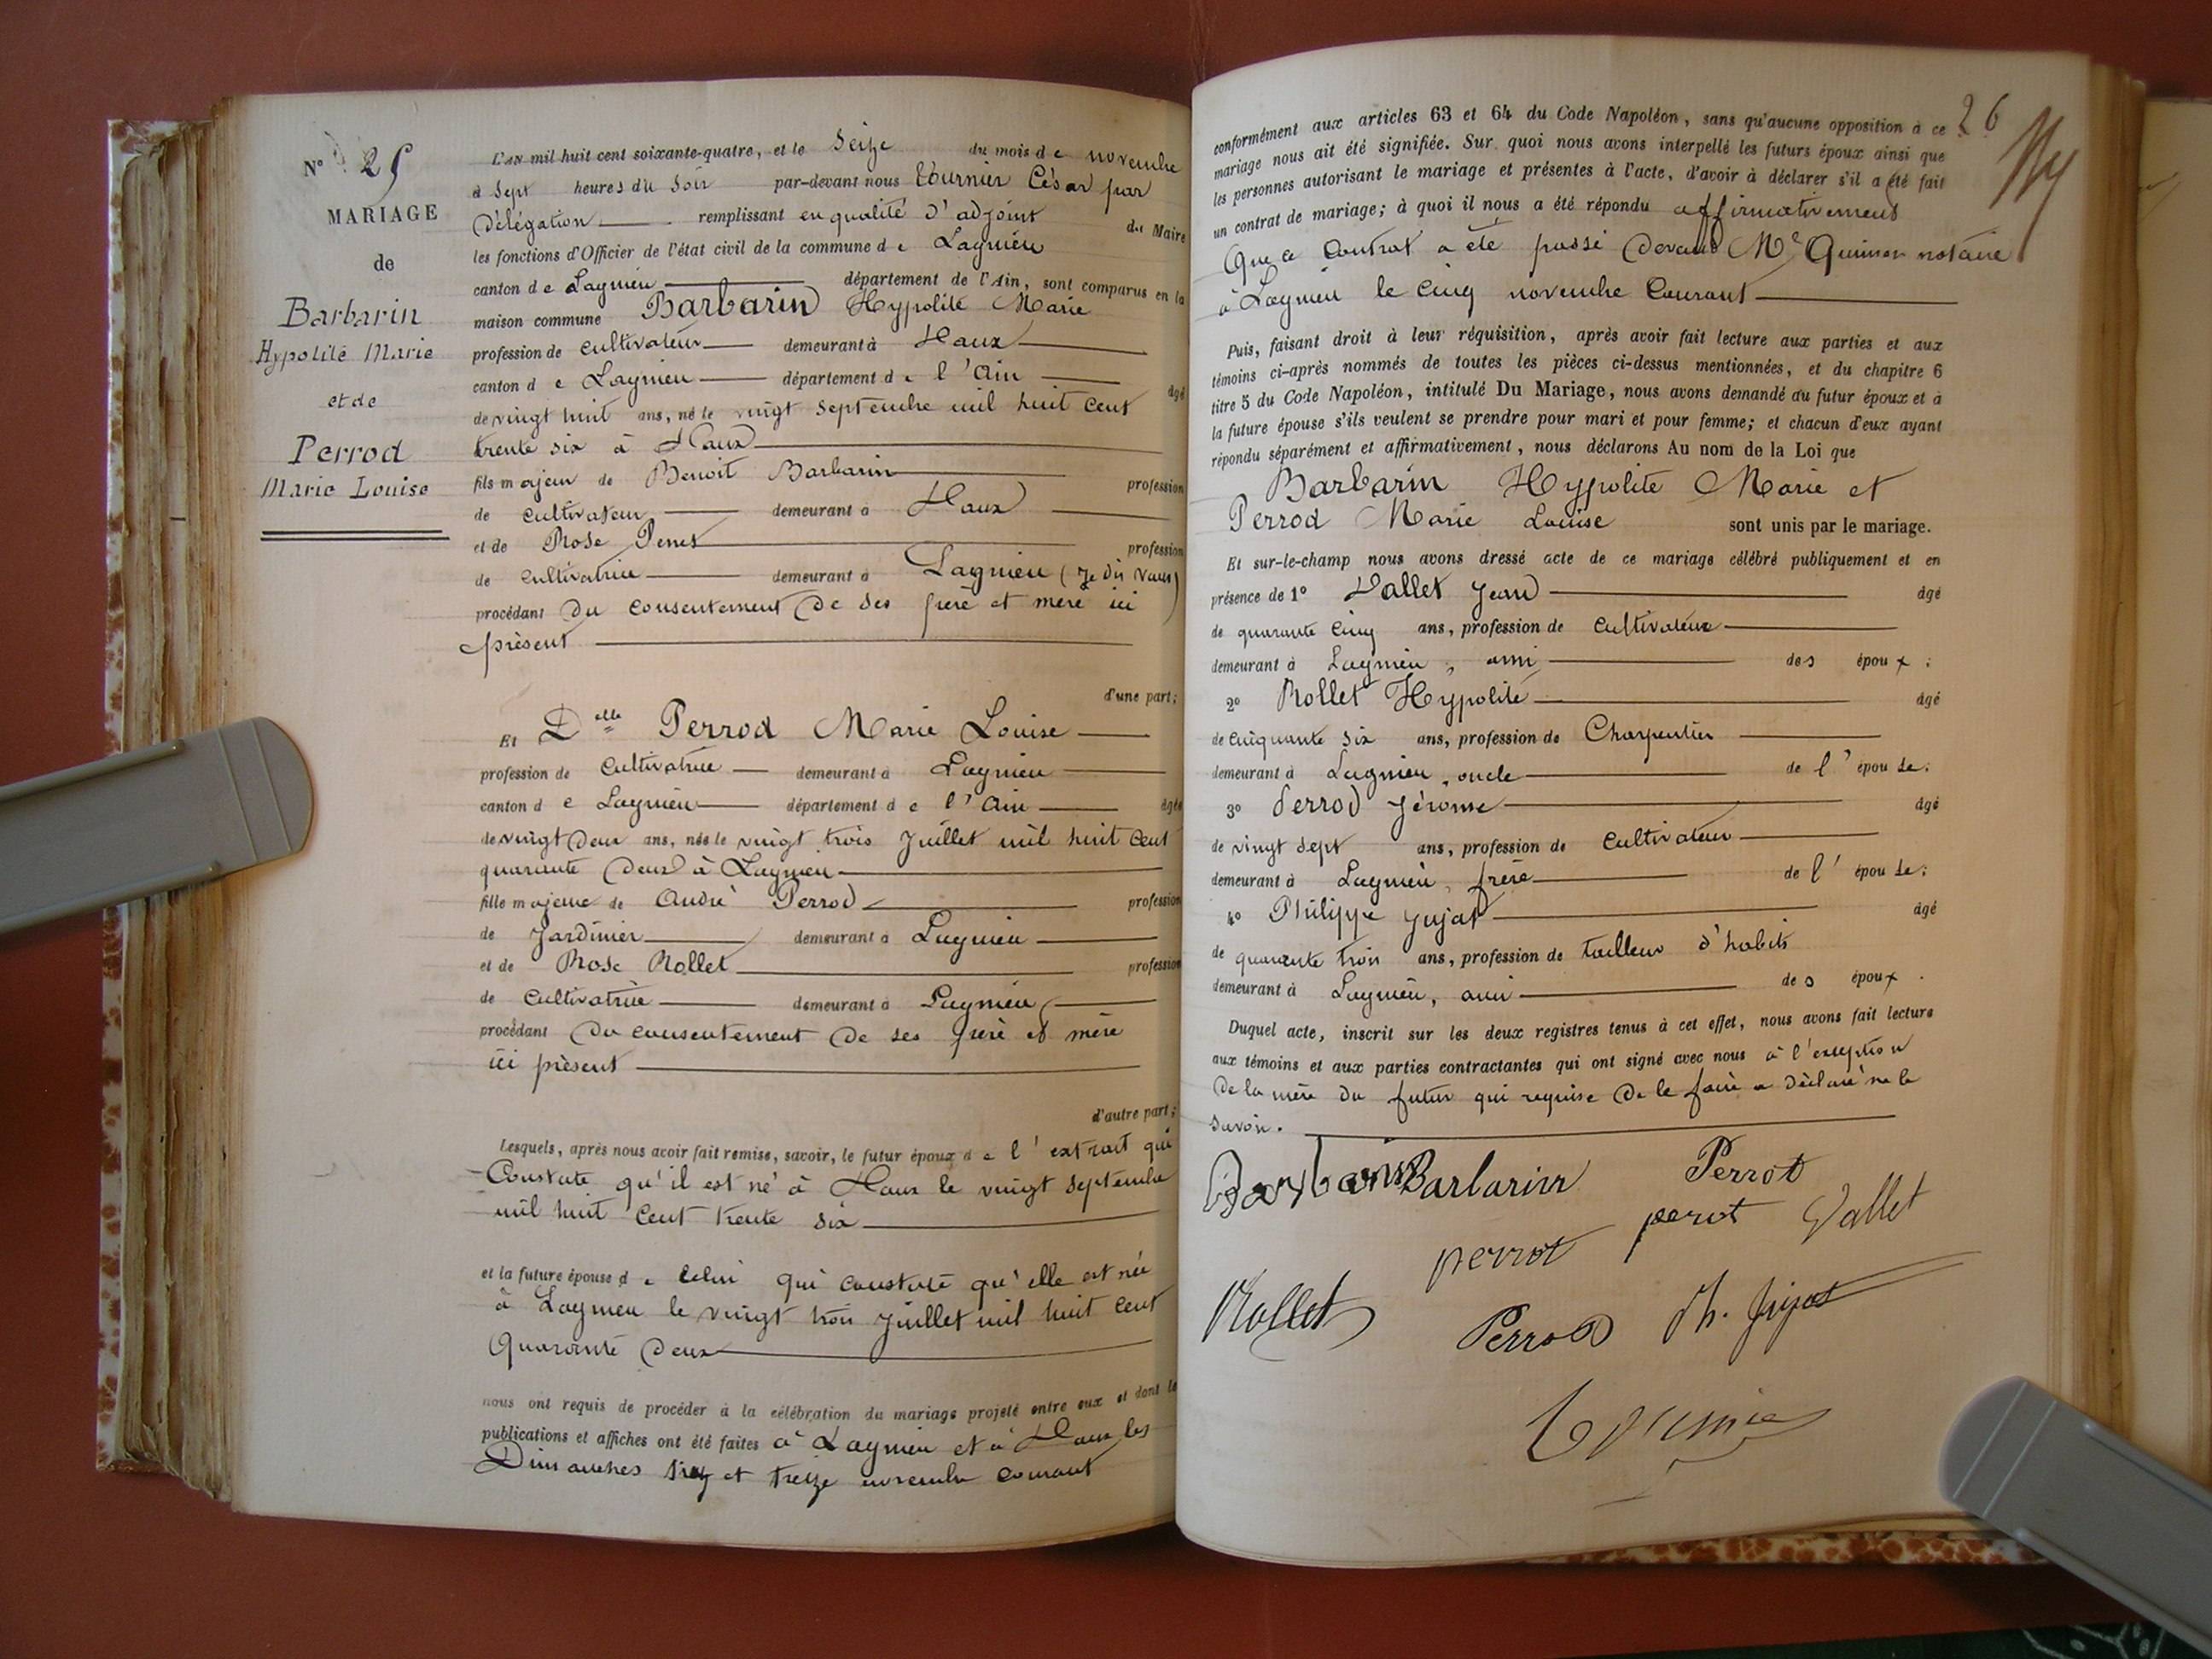 N° 25
MARIAGE
de
Barbarin
Hypolite Marie
et de
Perrod
Marie Louise
L'AN mil huit cent soixante-quatre, et le Seize du mois de novembre
à sept heures du soir par-devant nous Tournier César par
Délégation remplissant en qualité d'adjoint du Maire
les fonctions d'Officier de l'état civil de la commune de Lagnieu
canton de Lagnieu département de l'Ain, sont comparus en la
maison commune Barbarin Hypolite Marie
profession de cultivateur demeurant à Vaux
canton de Lagnieu département de l'Ain âgé
de vingt huit ans, né le vingt septembre mil huit cent
trente six à Vaux
fils majeur de Benoit Barbarin profession
de cultivateur demeurant à Vaux
et de Rose profession
de cultivatrice demeurant à Lagnieu (je dis Vaux)
procédant du consentement de ses père et mère ici
présent
d'une part;
Et Delle Perrod Marie Louise
profession de cultivatrice demeurant à Lagnieu
canton de Lagnieu département de l'Ain âgée
de vingt deux ans, née le vingt trois Juillet mil huit cent
quarante deux à Lagnieu
fille majeure de André Perrod profession
de Jardinier demeurant à Lagnieu
et de Rose Rollet profession
de cultivatrice demeurant à Lagnieu
procédant du consentement de ses père et mère
ici présent
d'autre part;
Lesquels, après nous avoir fait remise, savoir, le futur époux de l'extrait qui
Constate qu'il est né à Vaux le vingt septembre
mil huit cent trente six
et la future épouse de celui qui constate qu'elle est née
à Lagnieu le vingt trois Juillet mil huit cent
Quarante deux
nous ont requis de procéder à la célébration du mariage projeté entre eux et dont les
publications et affiches ont été faites à Lagnieu et à Vaux les
Dimanches six et treize novembre courant
26
conformément aux articles 63 et 64 du Code Napoléon, sans qu'aucune opposition à ce
mariage nous ait été signifiée. Sur quoi nous avons interpellé les futurs époux ainsi que
les personnes autorisant le mariage et présentes à l'acte, d'avoir à déclarer s'il a été fait
un contrat de mariage; à quoi il nous a été répondu affirmativement
Que ce Contrat a été passé devant Me notaire
à Lagnieu le cinq novembre Courant
Puis, faisant droit à leur réquisition, après avoir fait lecture aux parties et aux
témoins ci-après nommés de toutes les pièces ci-dessus mentionnées, et du chapitre 6
titre 5 du Code Napoléon, intitulé Du Mariage, nous avons demandé au futur époux et à
la future épouse s'ils veulent se prendre pour mari et pour femme; et chacun d'eux ayant
répondu séparément et affirmativement, nous déclarons Au nom de la Loi que
Barbarin Hypolite Marie et
Perrod Marie Louise sont unis par le mariage.
Et sur-le-champ nous avons dressé acte de ce mariage célébré publiquement et en
présence de 1° Vallet Jean âgé
de quarante cinq ans, profession de cultivateur
demeurant à Lagnieu, ami des époux;
2° Rollet Hypolite âgé
de cinquante six ans, profession de Charpentier
demeurant à Lagnieu, oncle de l'épouse;
3° Perrod Jérome âgé
de vingt sept ans, profession de cultivateur
demeurant à Lagnieu, frère de l'épouse;
4° Philippe Jujat âgé
de quarante trois ans, profession de tailleur d'habits
demeurant à Lagnieu, ami des époux.
Duquel acte, inscrit sur les deux registres tenus à cet effet, nous avons fait lecture
aux témoins et aux parties contractantes qui ont signé avec nous à l'exception
de la mère du futur qui requise de le faire a déclaré ne le
savoir.
Barbarin Barbarin Perrot
perrot perot Vallet
Rollet Perrod Ph. Jujat